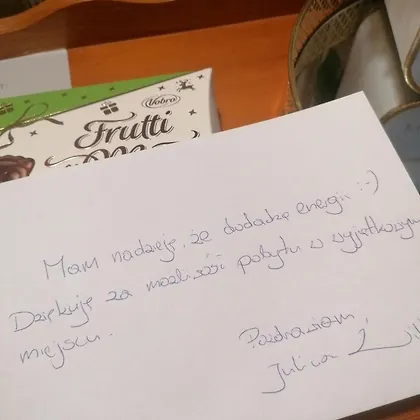 Vobro
Frutti
Mam nadzieję, że dodadzę energii :-)
Dziękuję za możliwość pobytu w wyjątkowym
miejscu.
Pozdrawiam,
Julia